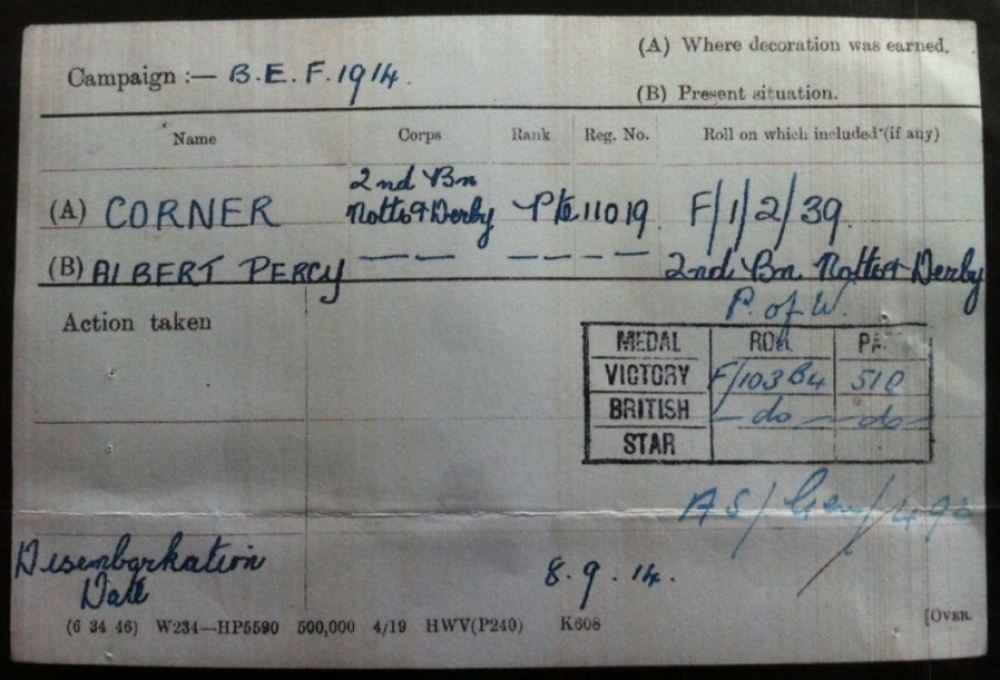 (A) Where decoration was earned.
Campaign :— B.E.F. 1914.
(B) Present situation.
Name Corps Rank Reg. No. Roll on which included (if any)
2nd Bn
(A) CORNER Notts & Derby Pte 11019 F/1/2/39.
(B) ALBERT PERCY — — — — — — 2nd Bn Notts & Derby
P. of W.
Action taken
MEDAL ROLL
VICTORY F/103 B4 510
BRITISH — do — — do —
STAR
AS/Gen/492
Disembarkation
Date 8.9.14.
(6 34 46) W234—HP5590 500,000 4/19 HWV(P240) K608 [OVER.